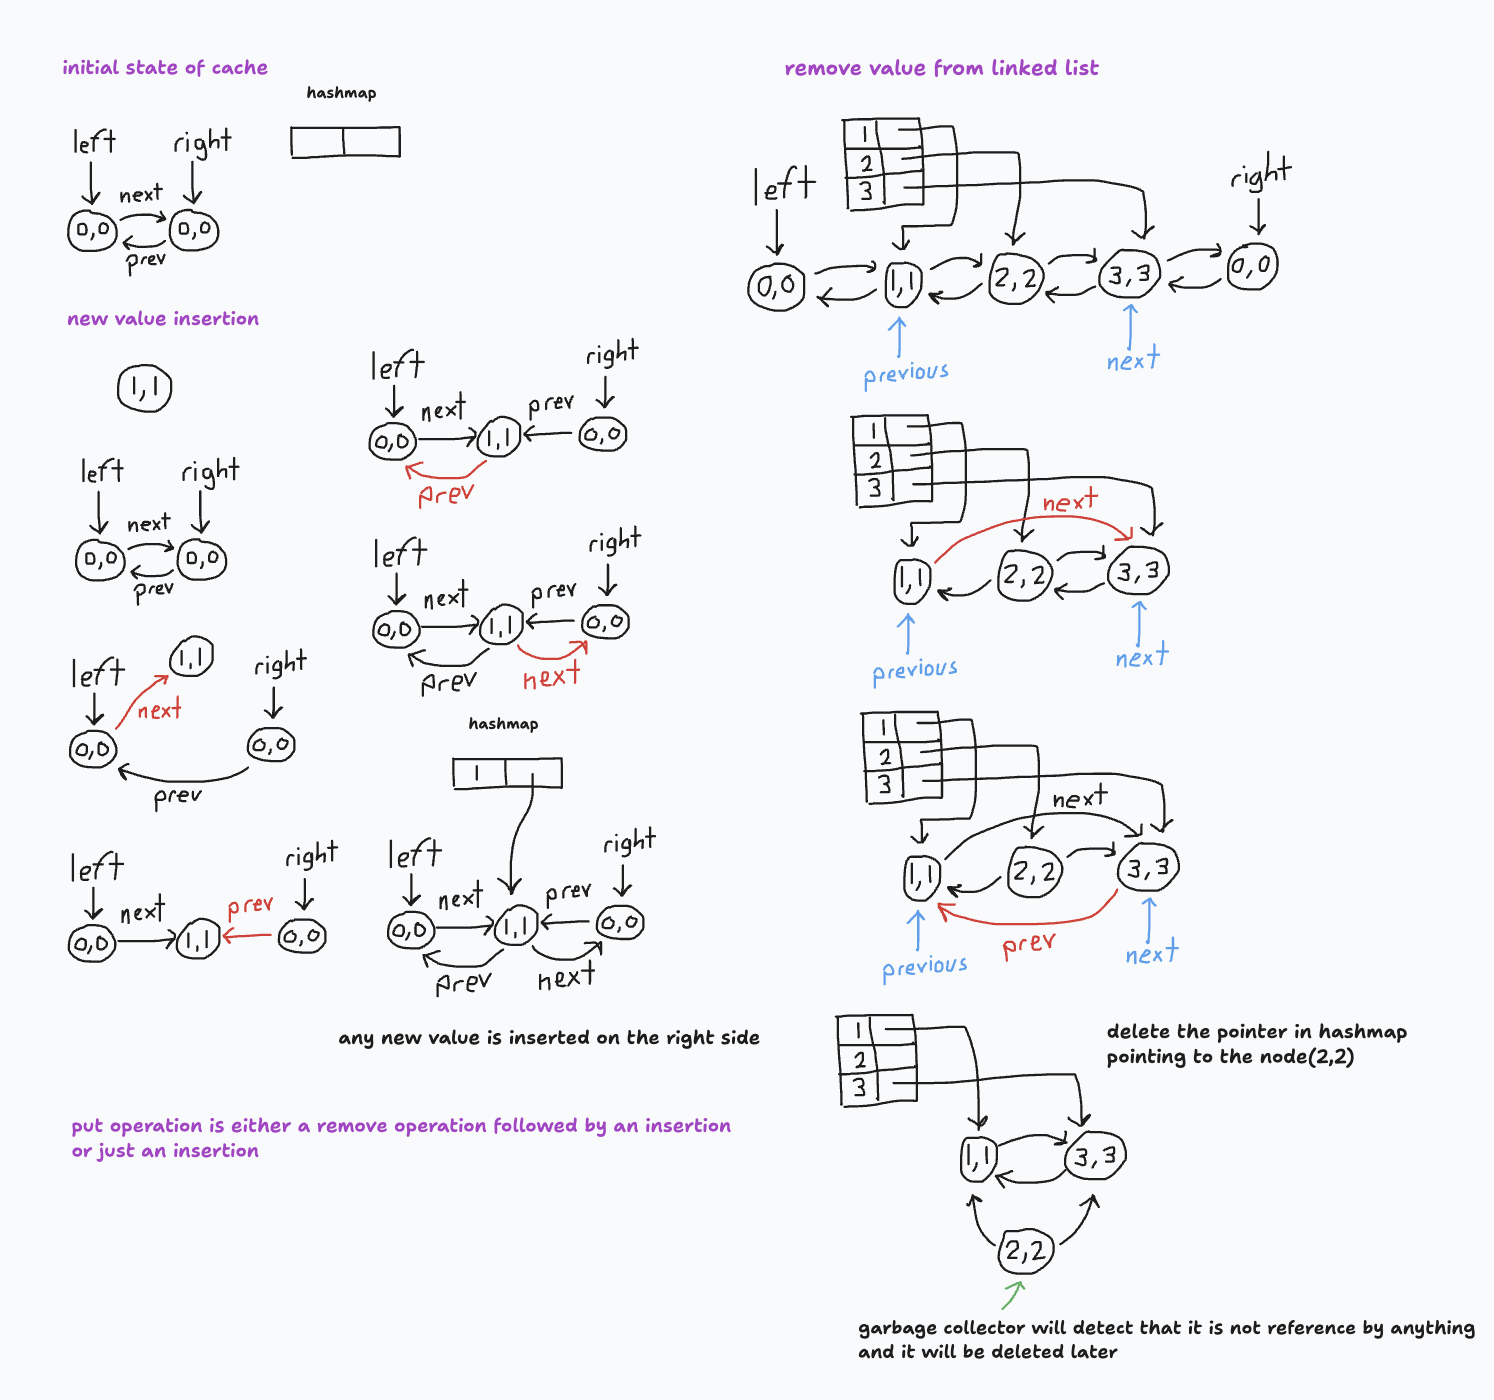 initial state of cache
hashmap
left
right
next
0,0
0,0
prev
new value insertion
1,1
left
right
next
0,0
0,0
prev
1,1
left
right
next
0,0
0,0
prev
left
right
next
prev
0,0
1,1
0,0
left
right
next
prev
0,0
1,1
0,0
prev
left
right
next
prev
0,0
1,1
0,0
prev
next
hashmap
1
left
right
next
prev
0,0
1,1
0,0
prev
next
any new value is inserted on the right side
put operation is either a remove operation followed by an insertion
or just an insertion
remove value from linked list
1
2
3
left
right
0,0
1,1
2,2
3,3
0,0
previous
next
1
2
3
next
1,1
2,2
3,3
previous
next
1
2
3
next
1,1
2,2
3,3
prev
previous
next
1
2
3
delete the pointer in hashmap
pointing to the node(2,2)
1,1
3,3
2,2
garbage collector will detect that it is not reference by anything
and it will be deleted later